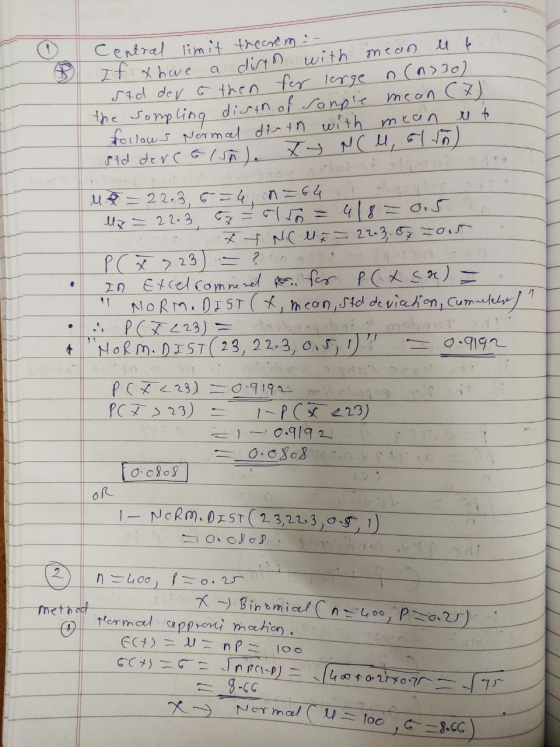 ① Central limit theorem :-
If X have a distn with mean μ &
std dev σ then for large n (n>30)
the sampling distn of sample mean (x̄)
follows Normal distn with mean μ &
std dev (σ/√n). X̄ → N(μ, σ/√n)
μx̄ = 22.3, σ = 4, n = 64
μx̄ = 22.3, σx̄ = σ/√n = 4/8 = 0.5
X̄ → N(μx̄ = 22.3, σx̄ = 0.5
P(X̄ > 23) = ?
• In Excel command for P(X ≤ x) =
" NORM.DIST (X, mean, std deviation, cumulative) "
• ∴ P(X̄ < 23) =
"NORM.DIST (23, 22.3, 0.5, 1)" = 0.9192
P(X̄ < 23) = 0.9192
P(X̄ > 23) = 1 - P(X̄ < 23)
= 1 - 0.9192
= 0.0808
0.0808
OR
1 - NORM.DIST (23, 22.3, 0.5, 1)
= 0.0808.
② n = 400, P = 0.25
X → Binomial (n = 400, P = 0.25)
Method ① Normal approximation.
E(X) = μ = nP = 100
σ(X) = σ = √nP(1-P) = √400*0.25*0.75 = √75
= 8.66
X → Normal (μ = 100, σ = 8.66)